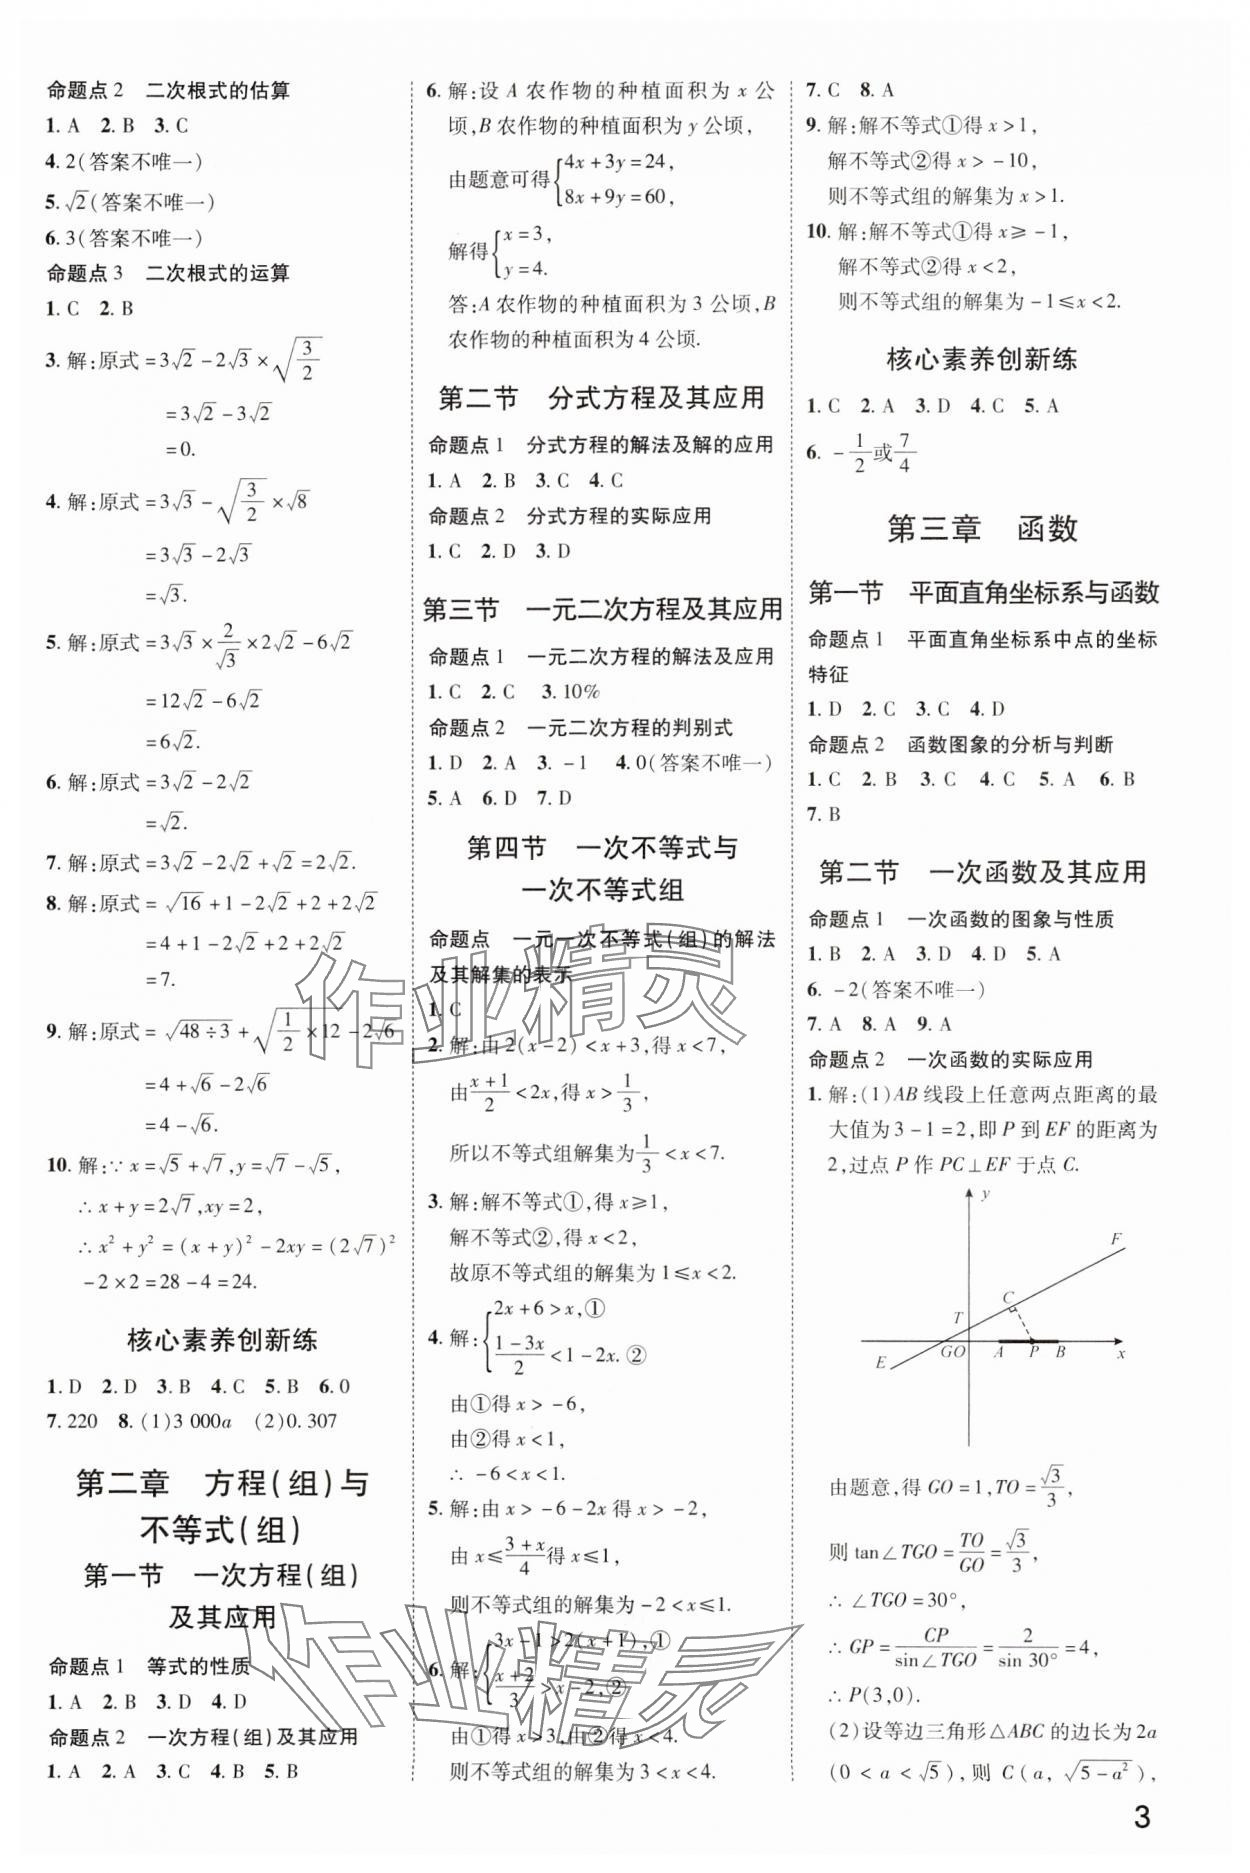 命题点2 二次根式的估算
1. A 2. B 3. C
4. 2(答案不唯一)
5. √2(答案不唯一)
6. 3(答案不唯一)
命题点3 二次根式的运算
1. C 2. B
3. 解:原式=3√2-2√3×√(3/2)
=3√2-3√2
=0.
4. 解:原式=3√3-√(3/2)×√8
=3√3-2√3
=√3.
5. 解:原式=3√3×2/√3×2√2-6√2
=12√2-6√2
=6√2.
6. 解:原式=3√2-2√2
=√2.
7. 解:原式=3√2-2√2+√2=2√2.
8. 解:原式=√16+1-2√2+2+2√2
=4+1-2√2+2+2√2
=7.
9. 解:原式=√(48÷3)+√(1/2×12)-2√6
=4+√6-2√6
=4-√6.
10. 解:∵x=√5+√7,y=√7-√5,
∴x+y=2√7,xy=2,
∴x²+y²=(x+y)²-2xy=(2√7)²
-2×2=28-4=24.
核心素养创新练
1. D 2. D 3. B 4. C 5. B 6. 0
7. 220 8. (1)3 000a (2)0.307
第二章 方程(组)与
不等式(组)
第一节 一次方程(组)
及其应用
命题点1 等式的性质
1. A 2. B 3. D 4. D
命题点2 一次方程(组)及其应用
1. A 2. A 3. C 4. B 5. B
6. 解:设A农作物的种植面积为x公
顷,B农作物的种植面积为y公顷,
由题意可得{4x+3y=24,
8x+9y=60,
解得{x=3,
y=4.
答:A农作物的种植面积为3公顷,B
农作物的种植面积为4公顷.
第二节 分式方程及其应用
命题点1 分式方程的解法及解的应用
1. A 2. B 3. C 4. C
命题点2 分式方程的实际应用
1. C 2. D 3. D
第三节 一元二次方程及其应用
命题点1 一元二次方程的解法及应用
1. C 2. C 3. 10%
命题点2 一元二次方程的判别式
1. D 2. A 3. -1 4. 0(答案不唯一)
5. A 6. D 7. D
第四节 一次不等式与
一次不等式组
命题点 一元一次不等式(组)的解法
及其解集的表示
1. C
2. 解:由2(x-2)<x+3,得x<7,
由(x+1)/2<2x,得x>1/3,
所以不等式组解集为1/3<x<7.
3. 解:解不等式①,得x≥1,
解不等式②,得x<2,
故原不等式组的解集为1≤x<2.
4. 解:{2x+6>x,①
(1-3x)/2<1-2x.②
由①得x>-6,
由②得x<1,
∴-6<x<1.
5. 解:由x>-6-2x得x>-2,
由x≤(3+x)/4得x≤1,
则不等式组的解集为-2<x≤1.
6. 解:{3x-1>2(x+1),①
(x+2)/3>x-2,②
由①得x>3,由②得x<4.
则不等式组的解集为3<x<4.
7. C 8. A
9. 解:解不等式①得x>1,
解不等式②得x>-10,
则不等式组的解集为x>1.
10. 解:解不等式①得x≥-1,
解不等式②得x<2,
则不等式组的解集为-1≤x<2.
核心素养创新练
1. C 2. A 3. D 4. C 5. A
6. -1/2或7/4
第三章 函数
第一节 平面直角坐标系与函数
命题点1 平面直角坐标系中点的坐标
特征
1. D 2. C 3. C 4. D
命题点2 函数图象的分析与判断
1. C 2. B 3. C 4. C 5. A 6. B
7. B
第二节 一次函数及其应用
命题点1 一次函数的图象与性质
1. B 2. A 3. D 4. D 5. A
6. -2(答案不唯一)
7. A 8. A 9. A
命题点2 一次函数的实际应用
1. 解:(1)AB线段上任意两点距离的最
大值为3-1=2,即P到EF的距离为
2,过点P作PC⊥EF于点C.
y
F
C
T
GO A P B x
E
由题意,得GO=1,TO=√3/3,
则tan∠TGO=TO/GO=√3/3,
∴∠TGO=30°,
∴GP=CP/sin∠TGO=2/sin 30°=4,
∴P(3,0).
(2)设等边三角形△ABC的边长为2a
(0<a<√5),则C(a,√(5-a²)),
3
作业精灵
作业精灵